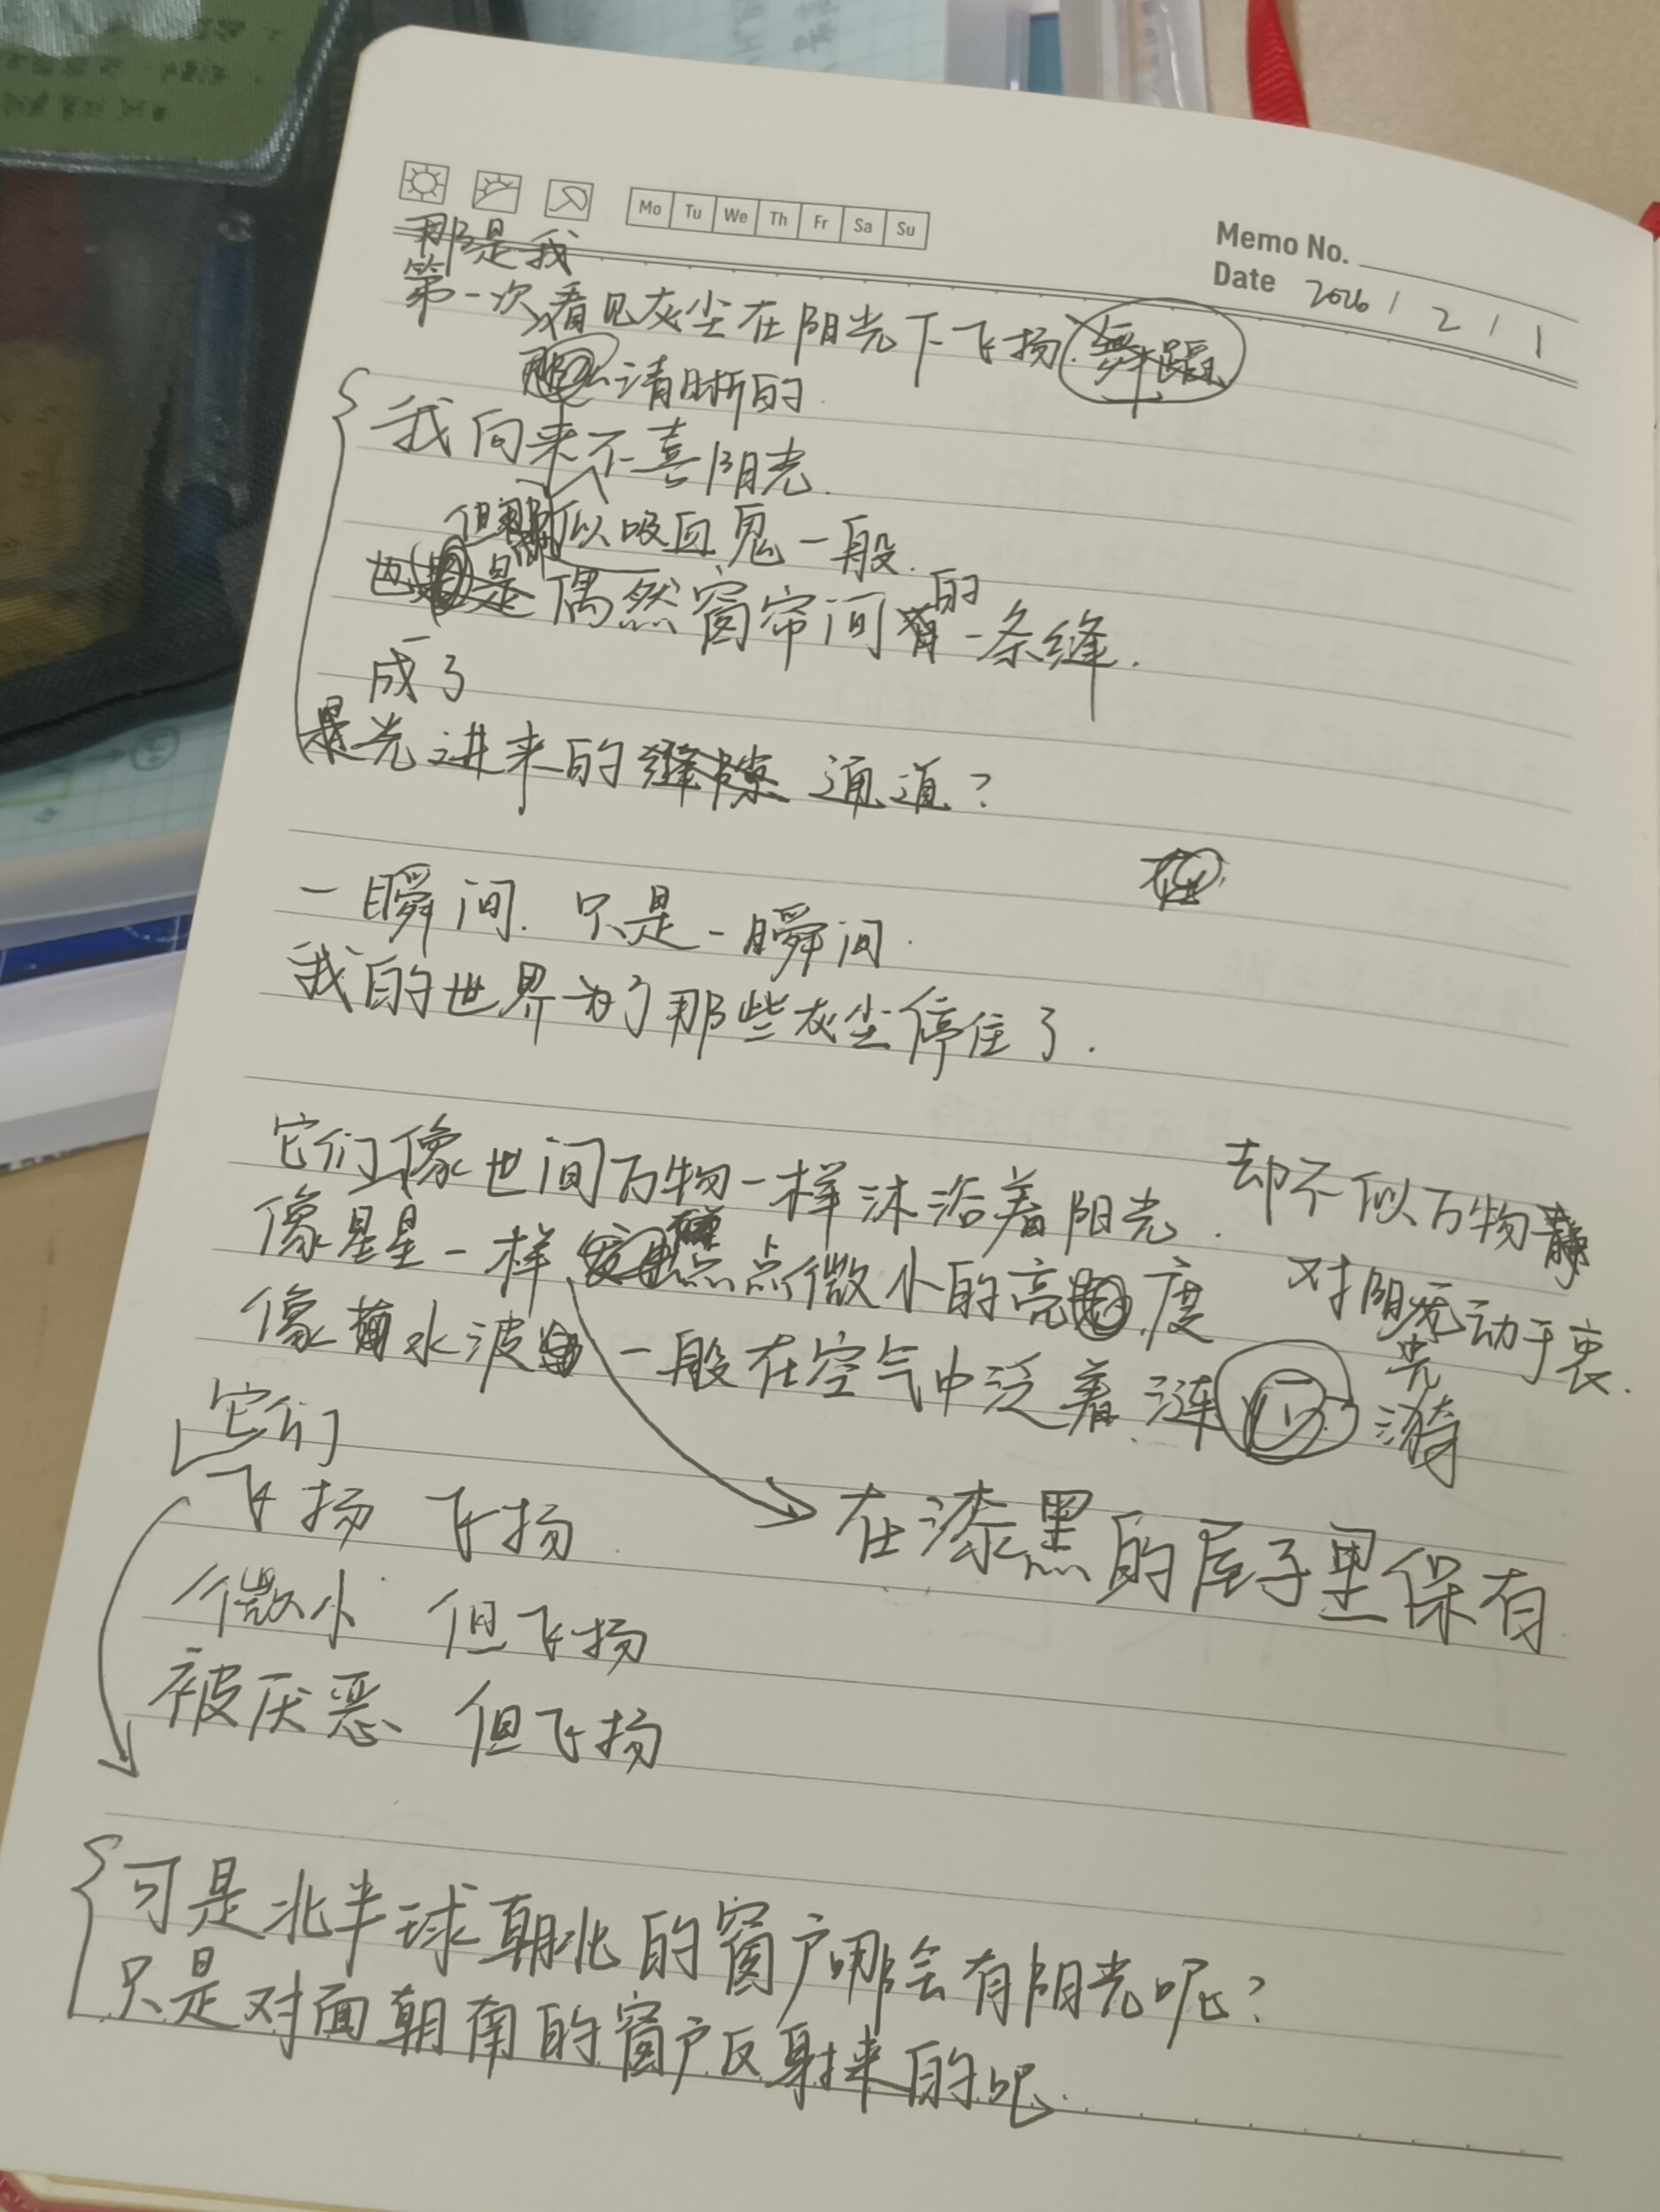 Mo Tu We Th Fr Sa Su
Memo No.
Date 2026 / 2 / 1
那是我
第一次看见灰尘在阳光下飞扬.舞蹈
清晰的
我向来不喜阳光.
但 似吸血鬼一般.
也 是偶然窗帘间有的一条缝.
成了
是光进来的缝隙 通道?
一瞬间.只是一瞬间.
我的世界为了那些灰尘停住了.
它们像世间万物一样沐浴着阳光.
却不似万物静
对阳光无动于衷.
像星星一样 点点微小的亮 度
像 水波 一般在空气中泛着涟 漪
在漆黑的屋子里保有
它们
飞扬 飞扬.
微小 但飞扬
被厌恶 但飞扬
可是北半球朝北的窗户哪会有阳光呢?
只是对面朝南的窗户反射来的吧.